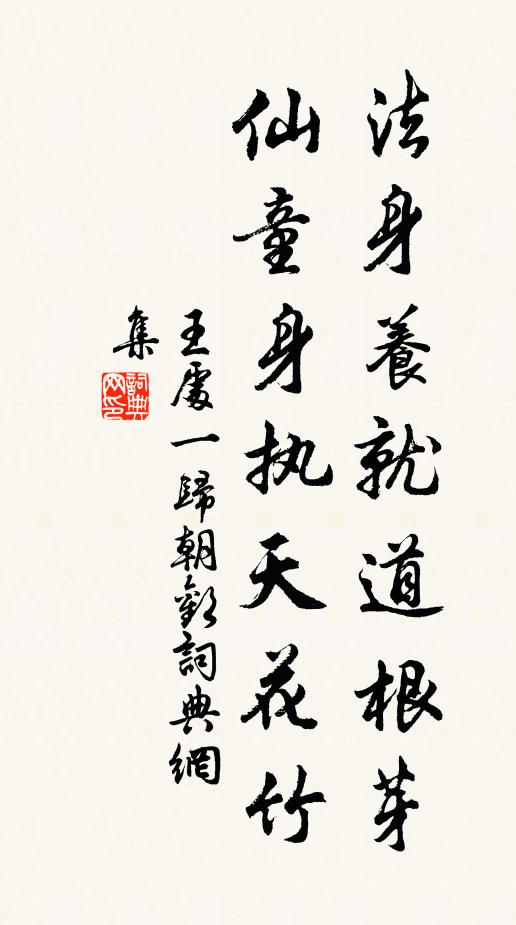 法身養就道根芽
仙童身执天花竹
王處一歸朝歡詞典網
集
詞典网印